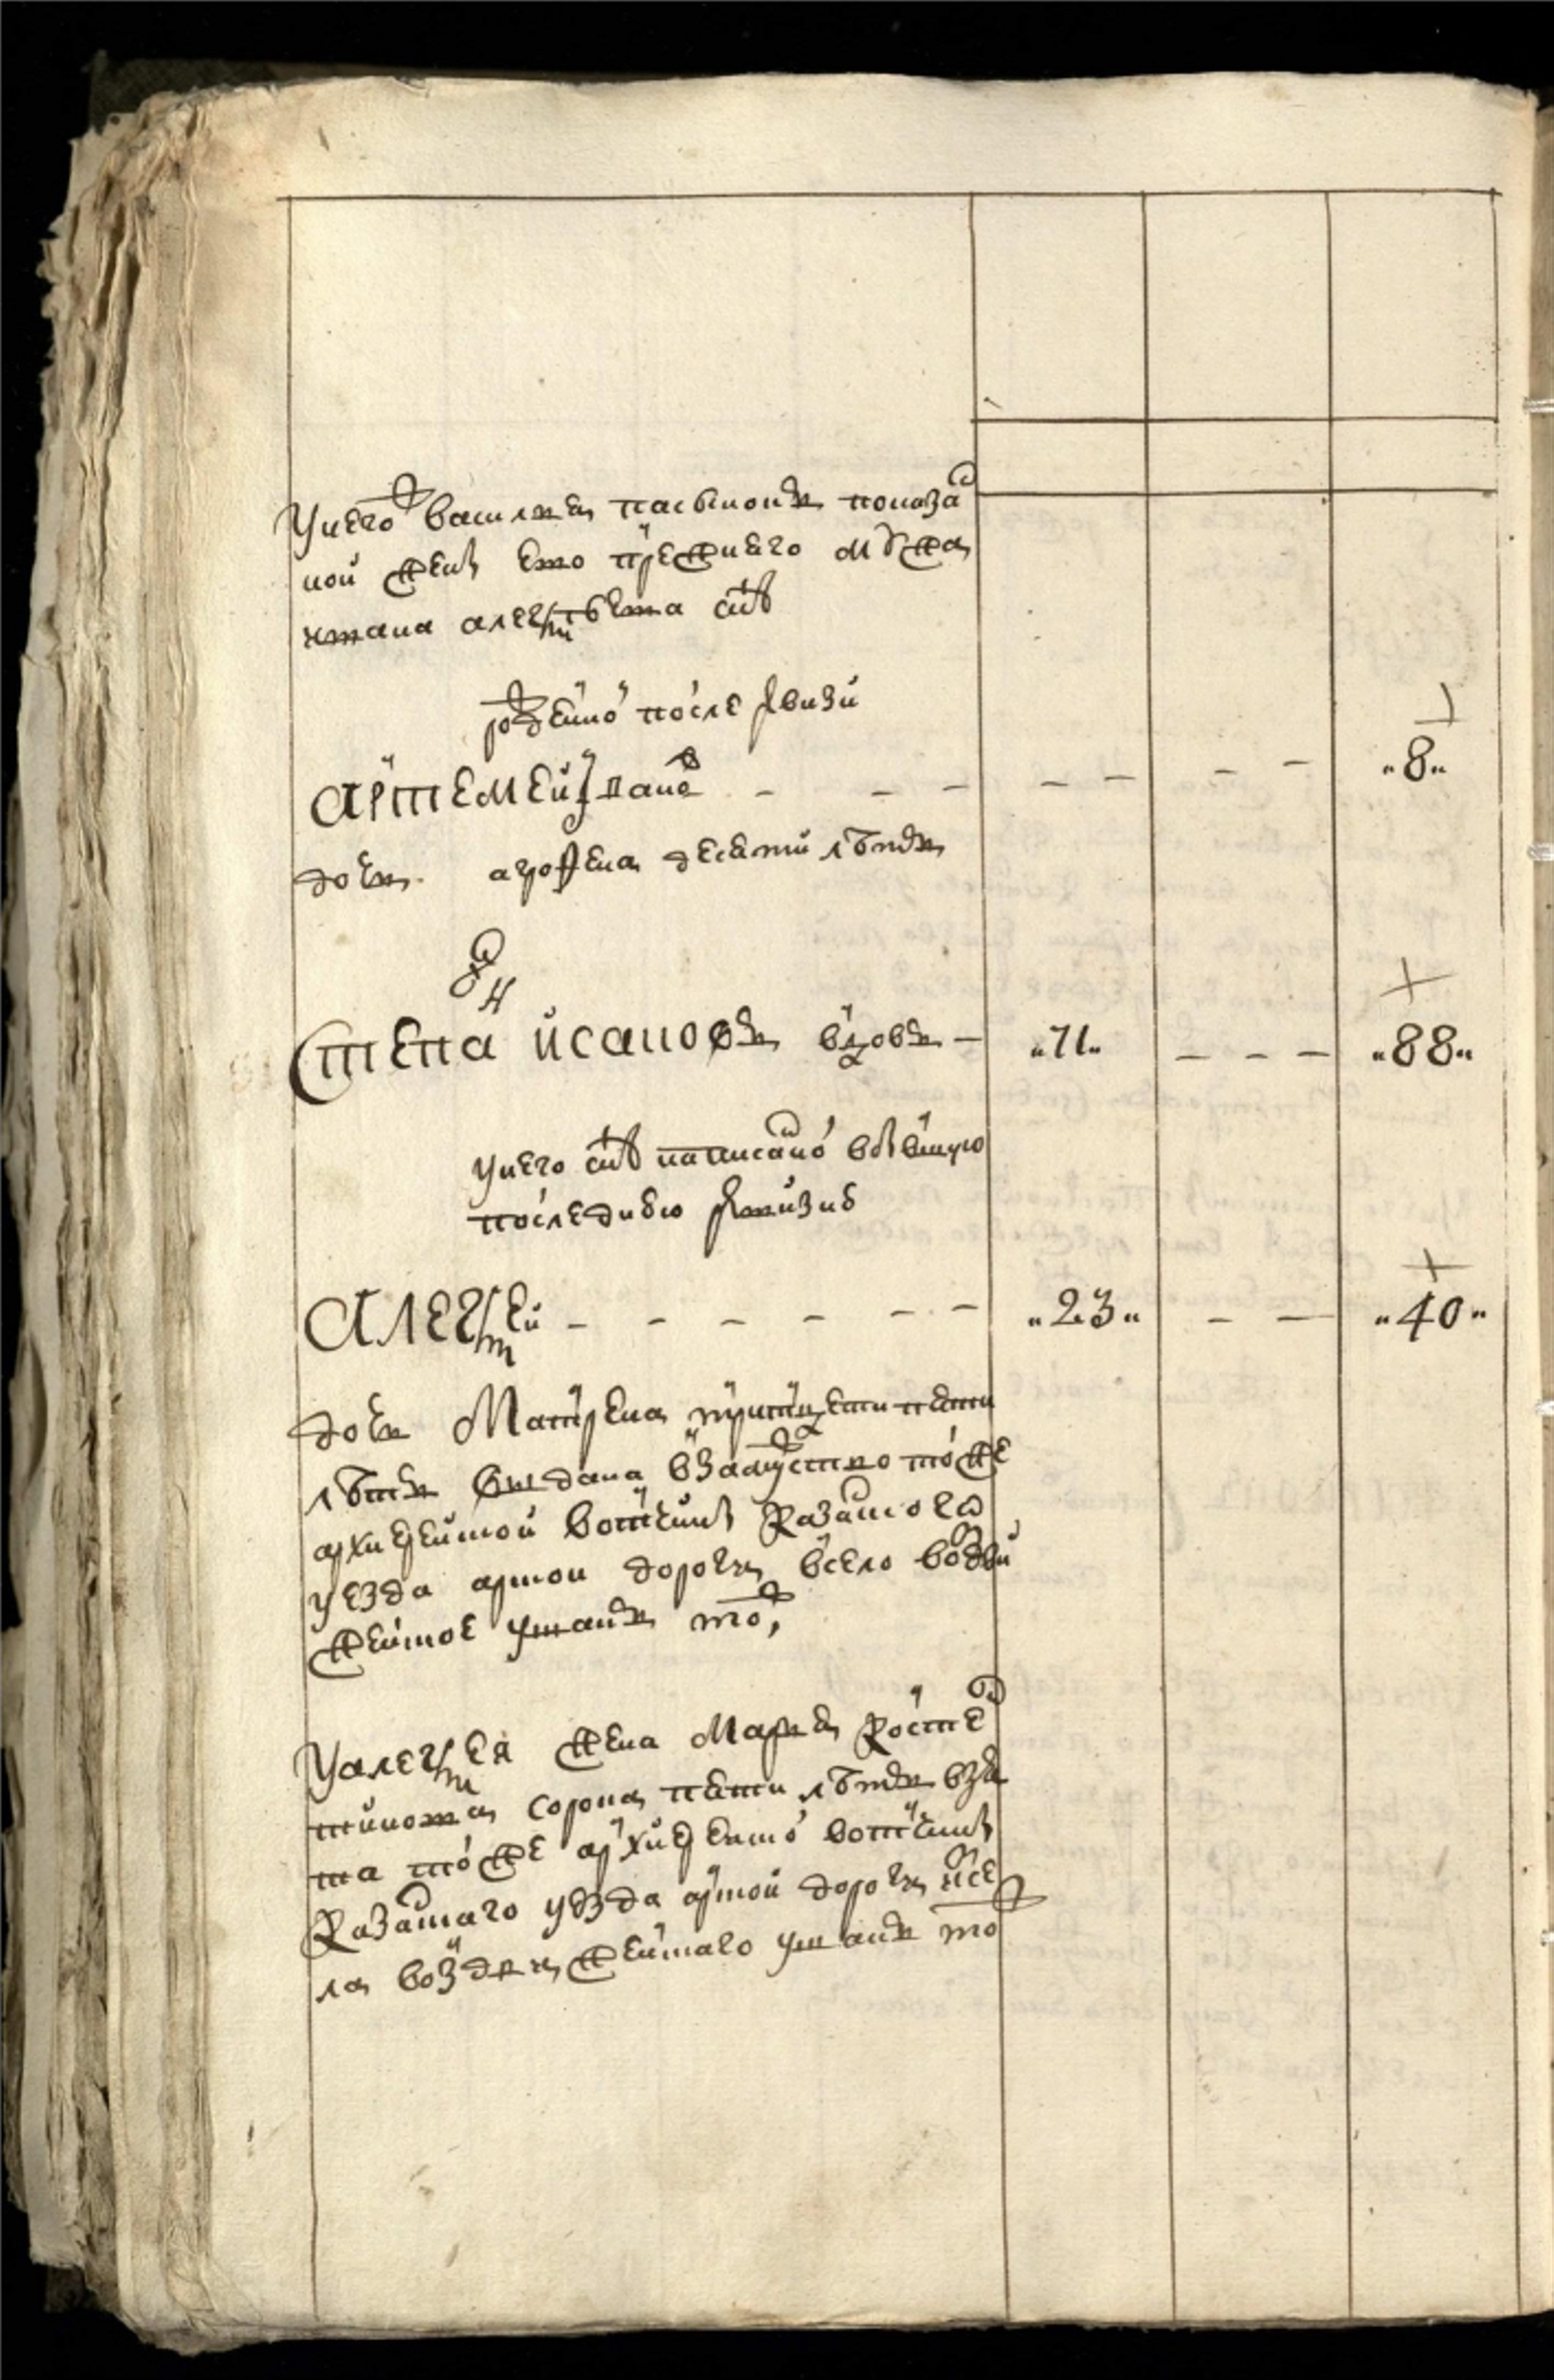 У него ж василья пасынокъ показа
ной жены ево прежнего мужа
ивана алексѣева снъ
рожденной после ревизии
Артемей иванов - - - - - - - „8„
дочь аграфена десяти лѣтъ
Степан исаковъ вдовъ - „71„ - - - „88„
у него снъ написанной в бывшую
последнюю ревизию
Алексей - - - - - - „23„ - - „40„
дочь Матрена тритцети пети
лѣтъ выдана в замужство той же
архиерейской вотчины казанского
уезда арской дороги в село воздви
женское
У алексея жена Марья костен
тинова сорока пети лѣтъ взя
та той же архиерейской вотчины
казанскаго уезда арской дороги ис се
ла воздвиженскаго